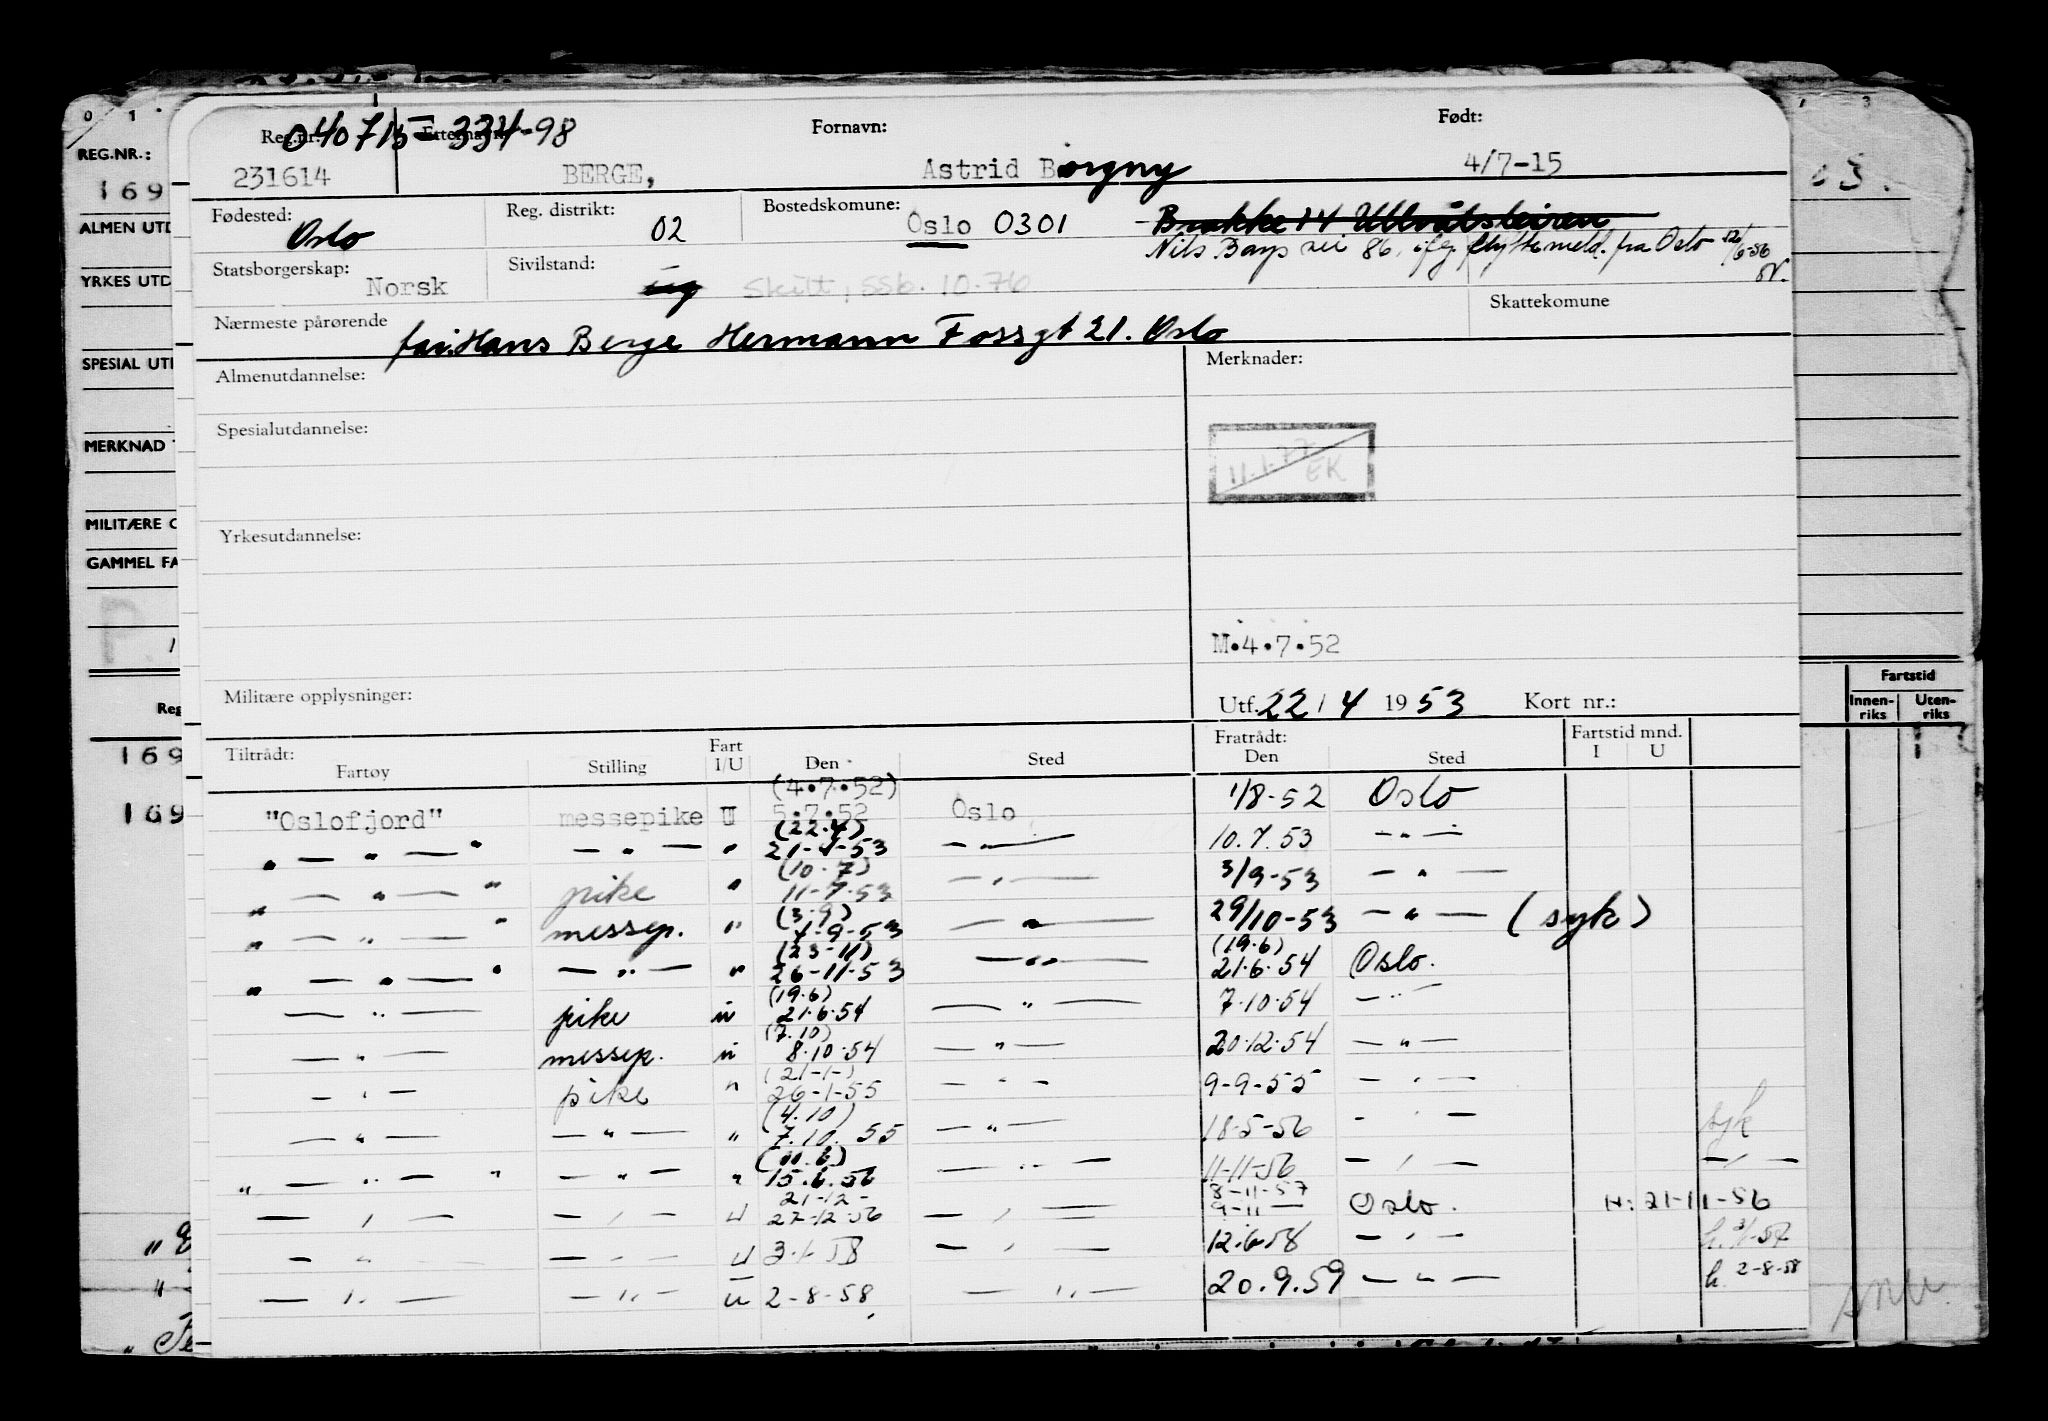 0 1
REG.NR.:
169
ALMEN UTD
YRKES UTD
SPESIAL UTD
MERKNAD
MILITÆRE O
GAMMEL FA
P.
Reg
169
169
3
Fartstid
Innen-riks Uten-riks
040715-334-98
Reg.nr. Etternavn: Fornavn: Født:
231614 BERGE, Astrid Borgny 4/7-15
Fødested: Oslo Reg. distrikt: 02 Bostedskomune: Oslo 0301 Brakke 14 Ullevålsleiren
Nils Bays vei 86, ifg. flyttemeld. fra Oslo 12/6-56
Statsborgerskap: Norsk Sivilstand: ug Skilt, SSB. 10.76
Nærmeste pårørende Skattekomune
far: Hans Berge Hermann Fossgt 21. Oslo
Almenutdannelse: Merknader:
Spesialutdannelse:
11.1.77 EK
Yrkesutdannelse:
M.4.7.52
Militære opplysninger: Utf. 22 / 4 1953 Kort nr.:
Tiltrådt: Fratrådt: Fartstid mnd.
Fartøy Stilling Fart I/U Den Sted Den Sted I U
(4.7.52)
"Oslofjord" messepike U 5.7.52 Oslo 1/8-52 Oslo
(22.4)
" — " — " — " — " 21-4-53 — " — 10.7.53 — " —
(10.7)
" — " — " pike " 11-7-53 — " — 3/9-53 — " —
(3.9)
" — " — " messep. " 4-9-53 — " — 29/10-53 — " — (syk)
(23-11) (19.6)
" — " — " — " — " 26-11-53 — " — 21.6.54 Oslo.
(19.6)
— " — pike " 21.6.54 — " — 7.10.54 — " —
(7.10)
— " — messep. " 8.10.54 — " — 20.12.54 — " —
(21-1-)
— " — pike " 26-1-55 — " — 9-9-55 — " —
(4.10)
— " — — " — " 7.10.55 — " — 18-5-56 — " — syk
" — " — " — " — " 15.6.56 — " — 11-11-56 — " — — " —
21-12- 8-11-57
— " — — " — U 27-12-56 — " — 9-11 — Oslo. H: 21-11-56
— " — — " — U 3-1-58 — " — 12.6.58 — " —
— " — — " — U 2-8-58 — " — 20.9.59 — " — h. 2-8-58